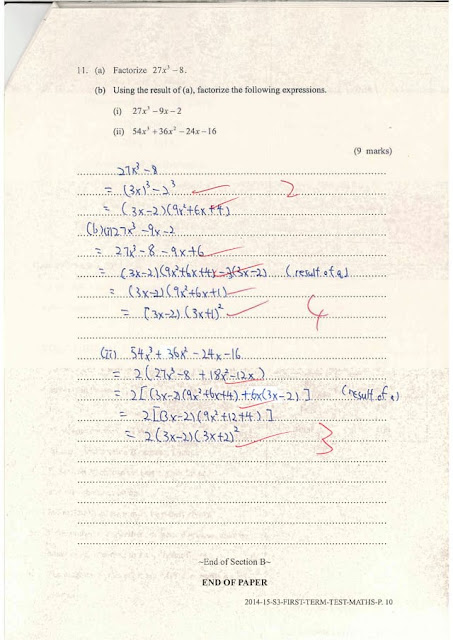 11. (a) Factorize 27x³ − 8.
(b) Using the result of (a), factorize the following expressions.
(i) 27x³ − 9x − 2
(ii) 54x³ + 36x² − 24x − 16
(9 marks)
27x³ − 8
= (3x)³ − 2³
2
= (3x − 2)(9x² + 6x + 4)
(b)(i) 27x³ − 9x − 2
= 27x³ − 8 − 9x + 6
= (3x − 2)(9x² + 6x + 4) − 3(3x − 2) (result of a)
= (3x − 2)(9x² + 6x + 1)
= (3x − 2)(3x + 1)²
4
(ii) 54x³ + 36x² − 24x − 16
= 2(27x³ − 8 + 18x² − 12x)
= 2[(3x − 2)(9x² + 6x + 4) + 6x(3x − 2)] (result of a)
= 2[(3x − 2)(9x² + 12 + 4)]
= 2(3x − 2)(3x + 2)²
3
~End of Section B~
END OF PAPER
2014-15-S3-FIRST-TERM-TEST-MATHS-P. 10